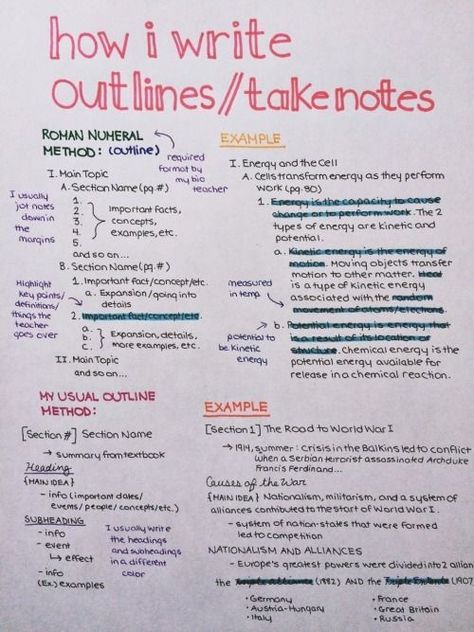 how i write
outlines//take notes
ROMAN NUMERAL
METHOD: (outline)
required
format by
my bio
teacher
I. Main Topic
A. Section Name (pg. #)
1.
2.
3.
4.
5.
Important facts,
concepts,
examples, etc.
and so on...
I usually
jot notes
down in
the
margins
B. Section Name (pg. #)
1. Important fact/concept/etc.
a. Expansion/going into
details
2. Important fact/concept/etc.
a.
b.
c.
Expansion, details,
more examples, etc.
Highlight
key points/
definitions/
things the
teacher
goes over
II. Main Topic
and so on...
EXAMPLE
I. Energy and the Cell
A. Cells transform energy as they perform
work (pg. 80)
1. Energy is the capacity to cause
change or to perform work. The 2
types of energy are kinetic and
potential.
a. Kinetic energy is the energy of
motion. Moving objects transfer
motion to other matter. Heat
is a type of kinetic energy
associated with the random
movement of atoms/electrons.
measured
in temp
b. Potential energy is energy that
is a result of its location or
structure. Chemical energy is the
potential energy available for
release in a chemical reaction.
potential to
be kinetic
energy
MY USUAL OUTLINE
METHOD:
[Section #] Section Name
→ summary from textbook
Heading
{MAIN IDEA}
- info (important dates/
events/people/concepts/etc.)
SUBHEADING
- info
- event
↳ effect
- info
(Ex.) examples
I usually write
the headings
and subheadings
in a different
color
EXAMPLE
[Section 1] The Road to World War I
→ 1914, summer: crisis in the Balkins led to conflict
when a Serbian terrorist assassinated Archduke
Francis Ferdinand...
Causes of the War
{MAIN IDEA} Nationalism, militarism, and a system of
alliances contributed to the start of World War I.
- system of nation-states that were formed
led to competition
NATIONALISM AND ALLIANCES
- Europe's greatest powers were divided into 2 allian
the Triple Alliance (1882) AND the Triple Entente (1907
• Germany
• Austria-Hungary
• Italy
• France
• Great Britain
• Russia